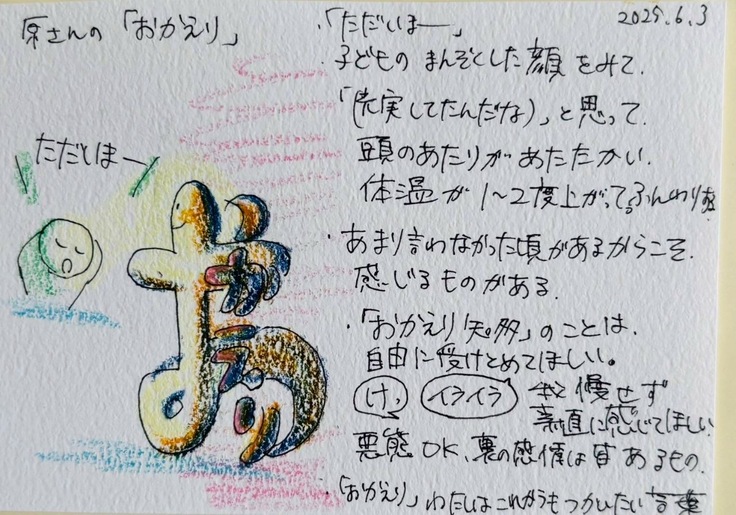 原さんの「おかえり」
2025.6.3
ただいまー
おかえり
・「ただいまー」
子どものまんぞくした顔をみて、
「(充実してたんだな)」と思って、
頭のあたりがあたたかい、
体温が1〜2度上がってるふんわり
・あまり言わなかった頃があるからこそ、
感じるものがある。
・「おかえり知多」のことは、
自由に受けとめてほしい。
けっ イライラ 我慢せず
素直に感じてほしい
悪態OK、裏の感情は皆あるもの。
・「おかえり」わたしはこれからもつかいたい言葉